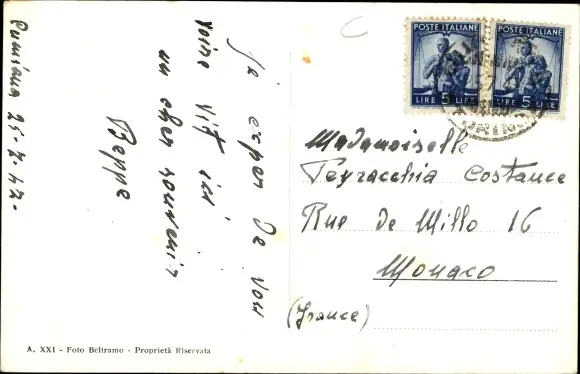 25-7-47-
Je espere De vous
voire vit ici
un cher souvenir
Beppe
A. XXI - Foto Beltramo - Proprietà Riservata
POSTE ITALIANE
LIRE 5 LIRE
POSTE ITALIANE
LIRE 5 LIRE
Mademoiselle
Peyracchia Costance
Rue de Millo 16
Monaco
(France)